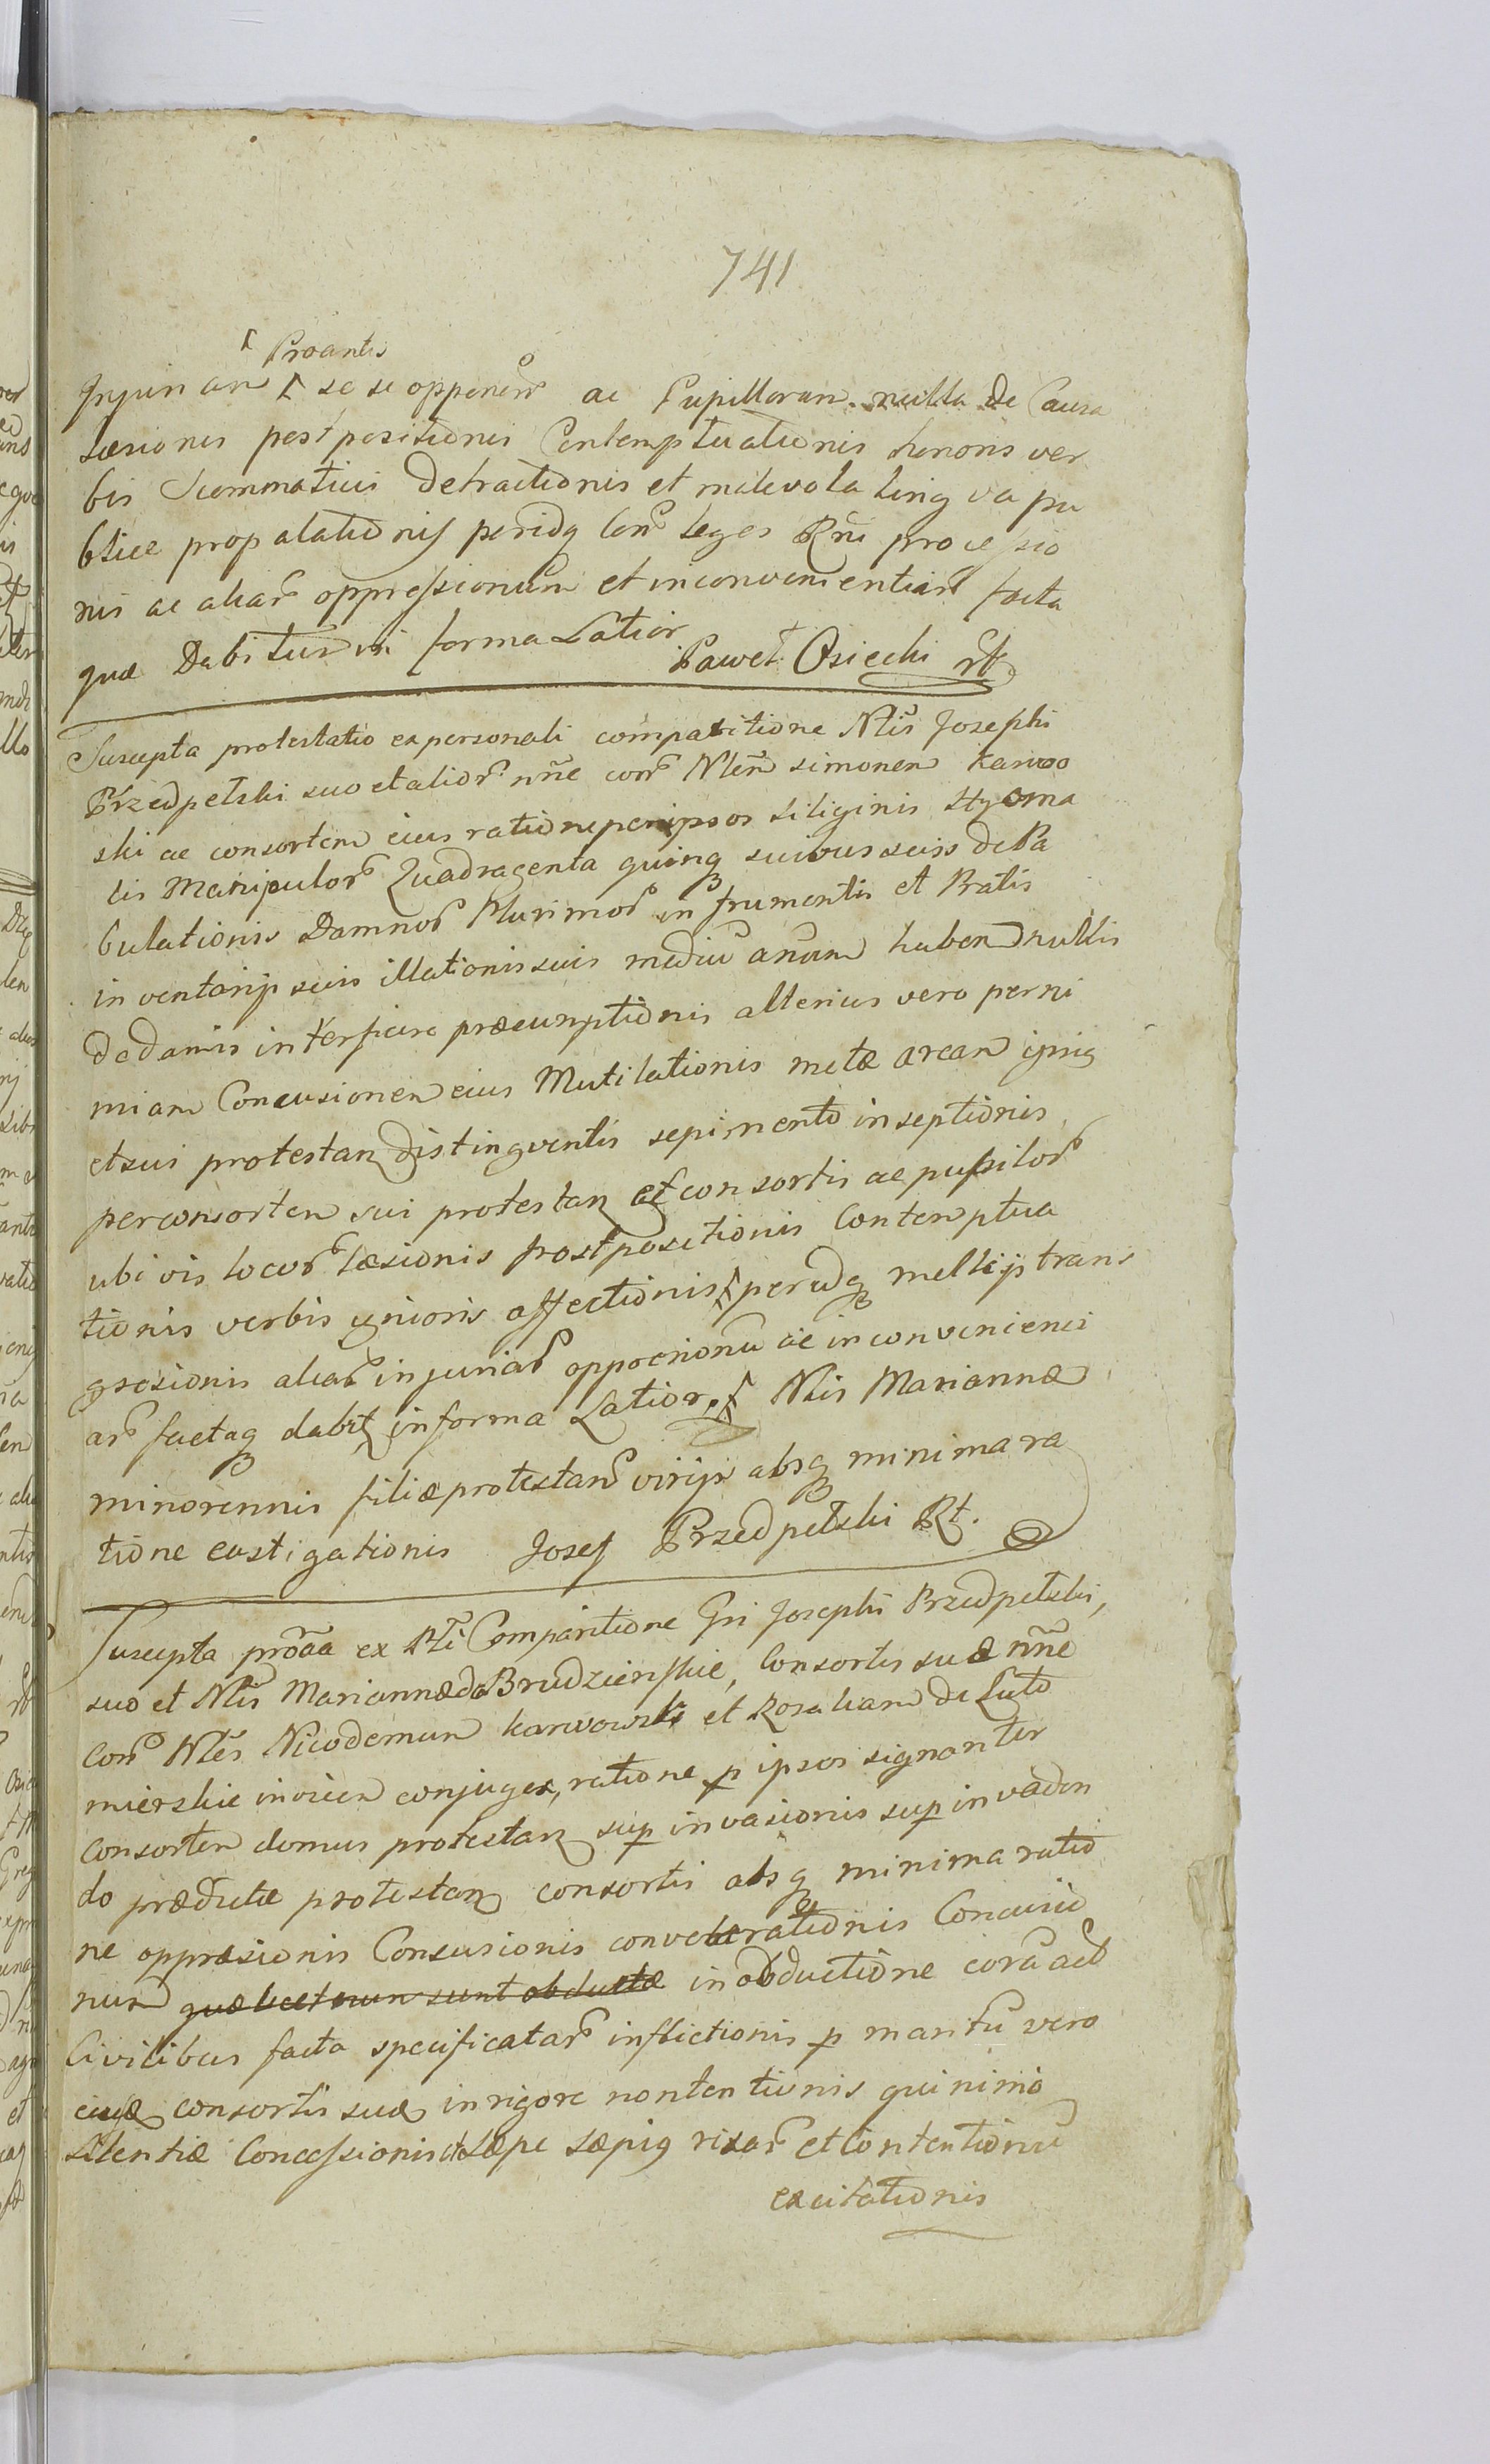 741
Proantis
Injuriam se se opponen ac Pupillorum nulla de Causa
læsionis postpositionis Contemptuationis honoris ver
bis Scommaticis detractionis et malevola lingva pu
blice propalationis peridq Con leges Rni processio
nis ac aliar oppressionum et inconvenientiar facta
quæ Dabitur in forma Latior
Paweł Osiecki
Suscepta protestatio ex personali comparitione Nlis Josephi
Przedpełski suo et alior nne con Nlem Simonem Karwo
ski ac consortem eius ratione per ipsos siliginis Hyema
lis Manipulor Quadragenta quinq suivus suis depa
bulationis Damnor Plurimor in frumentis et Pratis
inventarijs suis illationis suis mediu anum haben nullis
dedamis præsumptionis alterius vero perni
miam Concusionem eius Mutilationis metæ aream ipsig
et sui protestan distingventis sepimento inseptionis
per consortem sui protestan et consortis ac pupilor
ubi vis locor læsionis postpositionis Contemptua
tionis verbis affectionis peridq trans
gresionis aliar injuriar oppresionu ac inconvenienci
ar factaq dabit in forma Latior Nlis Mariannæ
minorennis filiæ protestan virijs absq minima ra
tione castigationis Josef Przedpełski Rt.
Suscepta proaa ex Pli Comparitione Gni Josephi Przedpełski,
suo et Nlis Mariannæ de Brudzienskie, Consortis suæ nne
Con Nles Nicodemum Karwowski et Rosaliam de Luto
mierskie invicem conjuges, ratione p ipsos signanter
Consortem domus protestan sup invasionis sup invaden
do prædictæ protestan consortis absq minima ratio
ne oppresionis Consusionis converberationis Concusio
num quæ licet nun sunt obductæ in obductione coram act
Civilibus facta specificatar inflictionis p maritu vero
eius consortis suæ in rigore nontentionis quinimo
silentiæ Concessionis et sæpe sæpiq rixar et Contentionu
excitationis